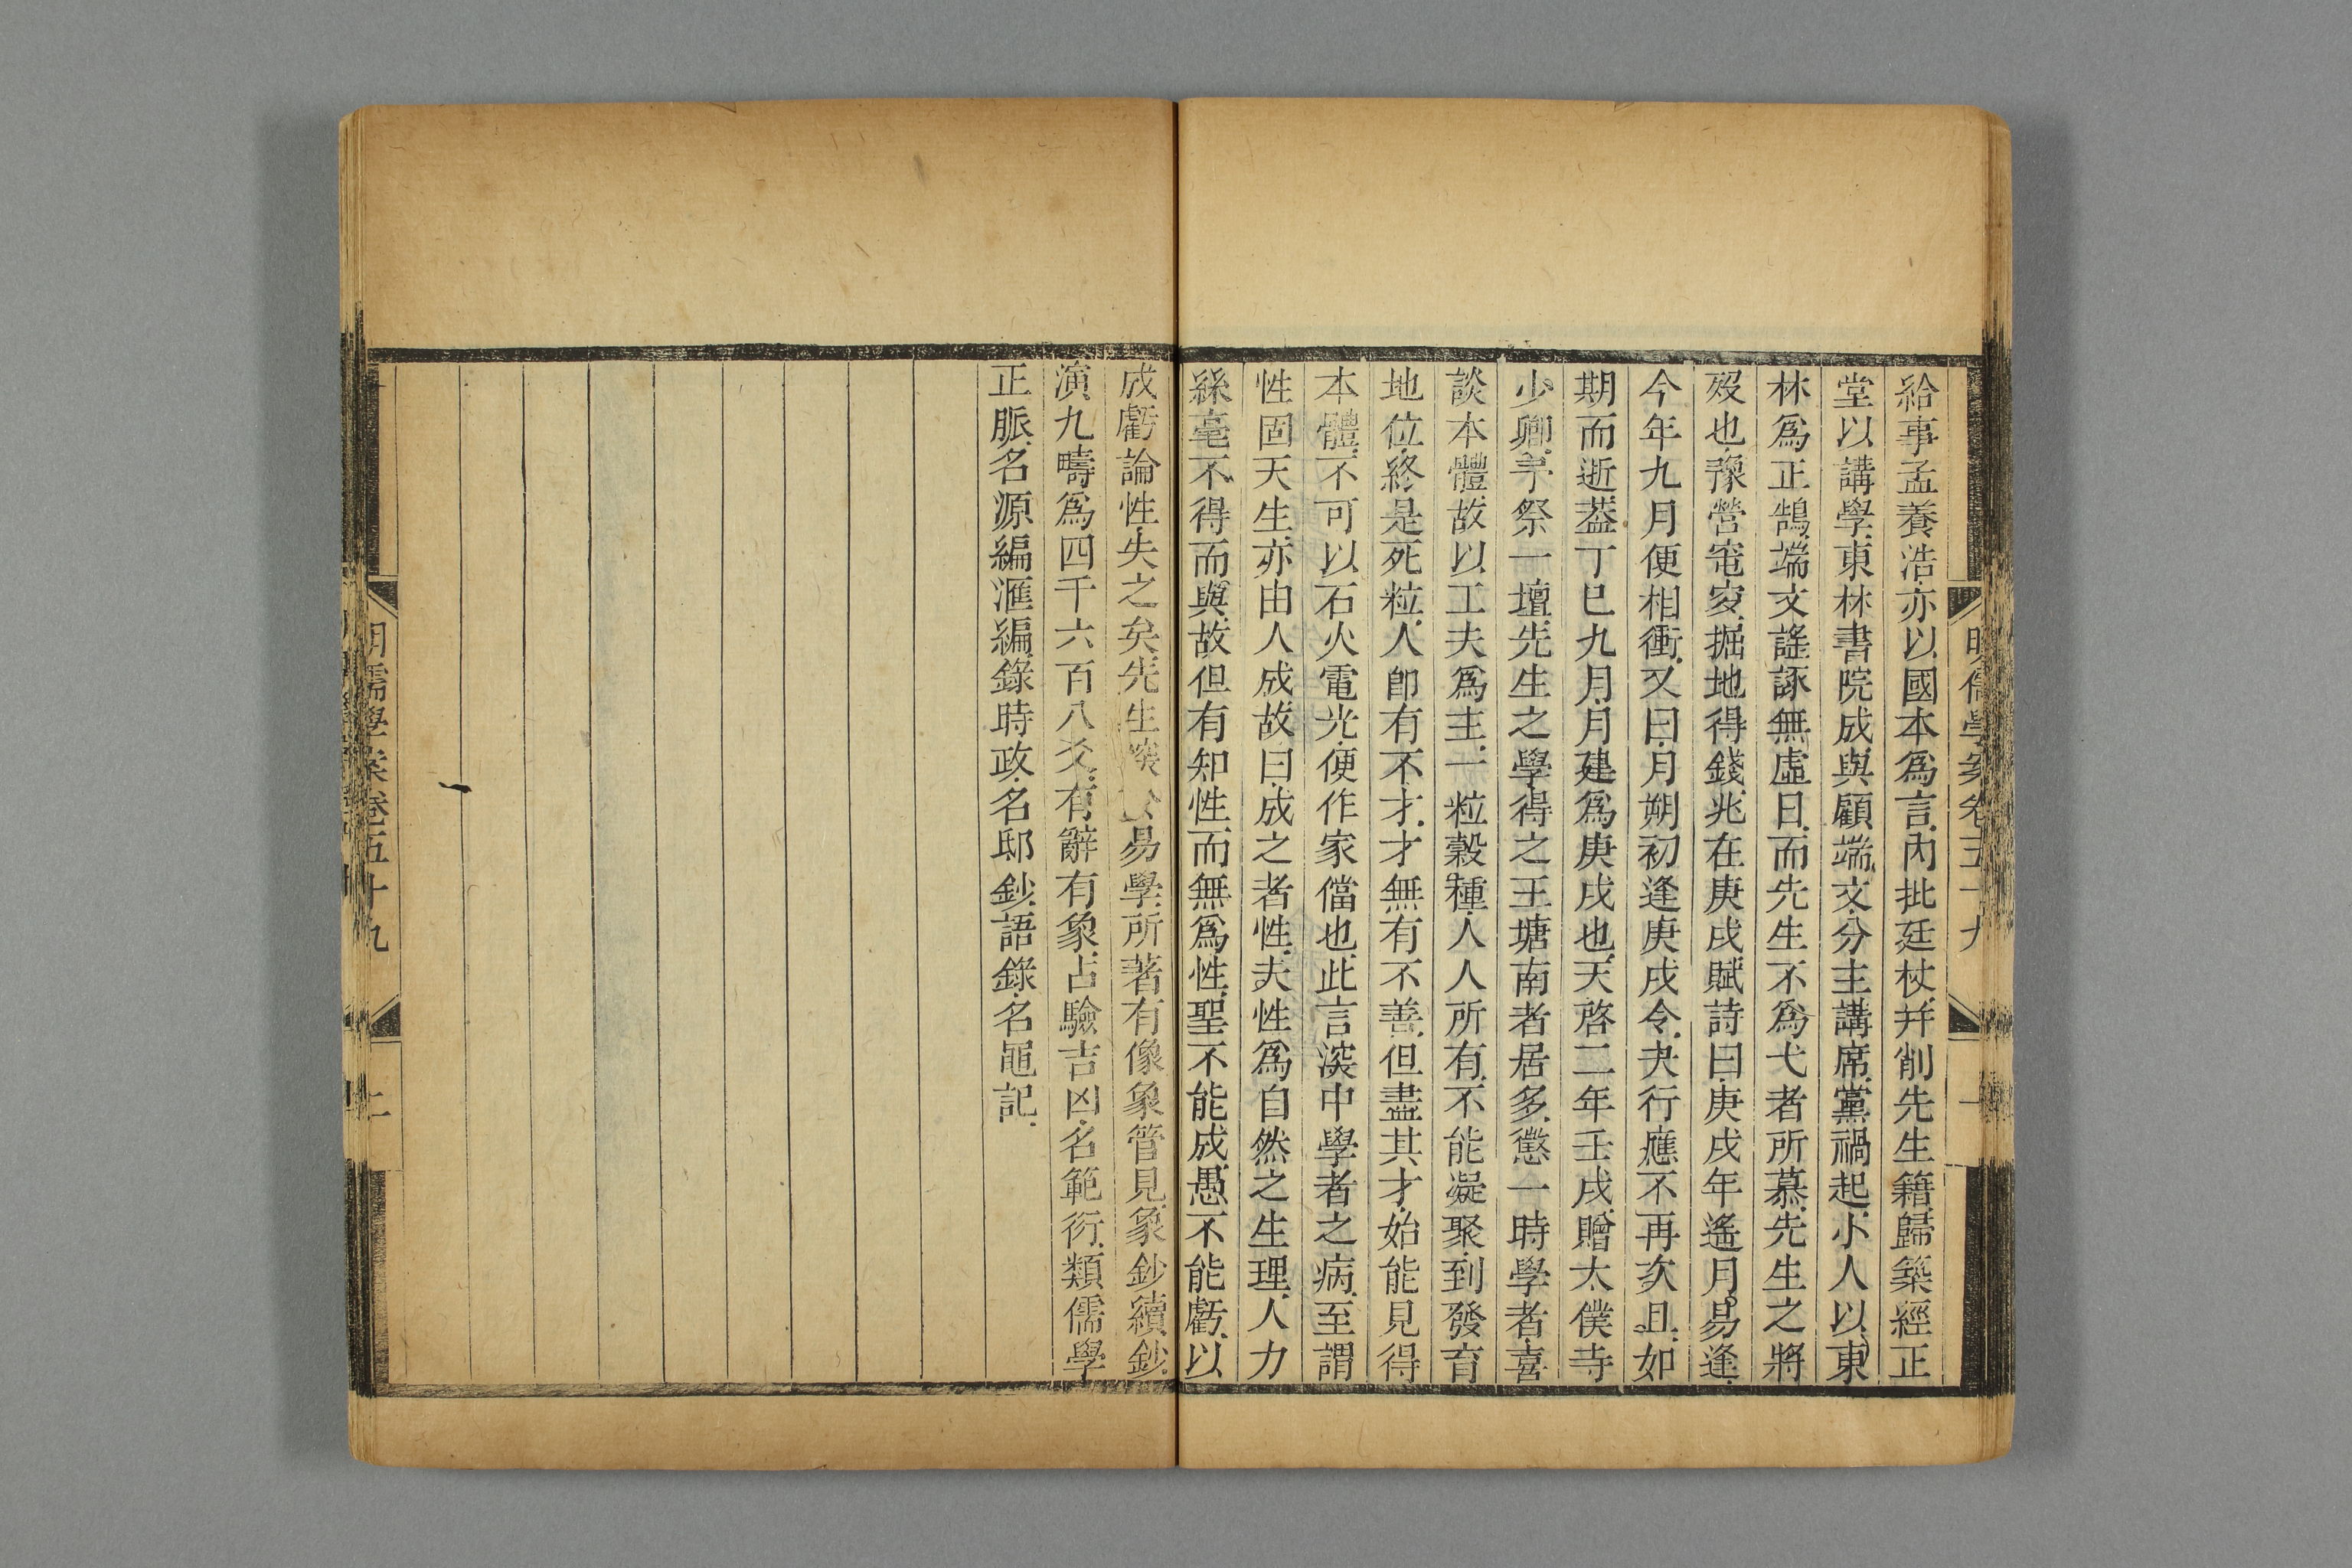 給事孟養浩亦以國本爲言內批廷杖幷削先生籍歸築經正
堂以講學東林書院成與顧端文分主講席黨禍起小人以東
林爲正鵠端文謠諑無虛日而先生不爲弋者所慕先生之將
歿也豫營窀穸掘地得錢兆在庚戌賦詩曰庚戌年遙月易逢
今年九月便相衝又曰月朔初逢庚戌令夬行應不再次且如
期而逝葢丁巳九月月建爲庚戌也天啓二年壬戌贈太僕寺
少卿予祭一壇先生之學得之王塘南者居多懲一時學者喜
談本體故以工夫爲主一粒穀種人人所有不能凝聚到發育
地位終是死粒人卽有不才才無有不善但盡其才始能見得
本體不可以石火電光便作家儅也此言深中學者之病至謂
性固天生亦由人成故曰成之者性夫性爲自然之生理人力
絲毫不得而與故但有知性而無爲性聖不能成愚不能虧以
成虧論性失之矣先生深於易學所著有像象管見象鈔續鈔
演九疇爲四千六百八爻有辭有象占驗吉凶名範衍類儒學
正脈名源編滙編錄時政名邸鈔語錄名黽記
明儒學案卷五十九
二